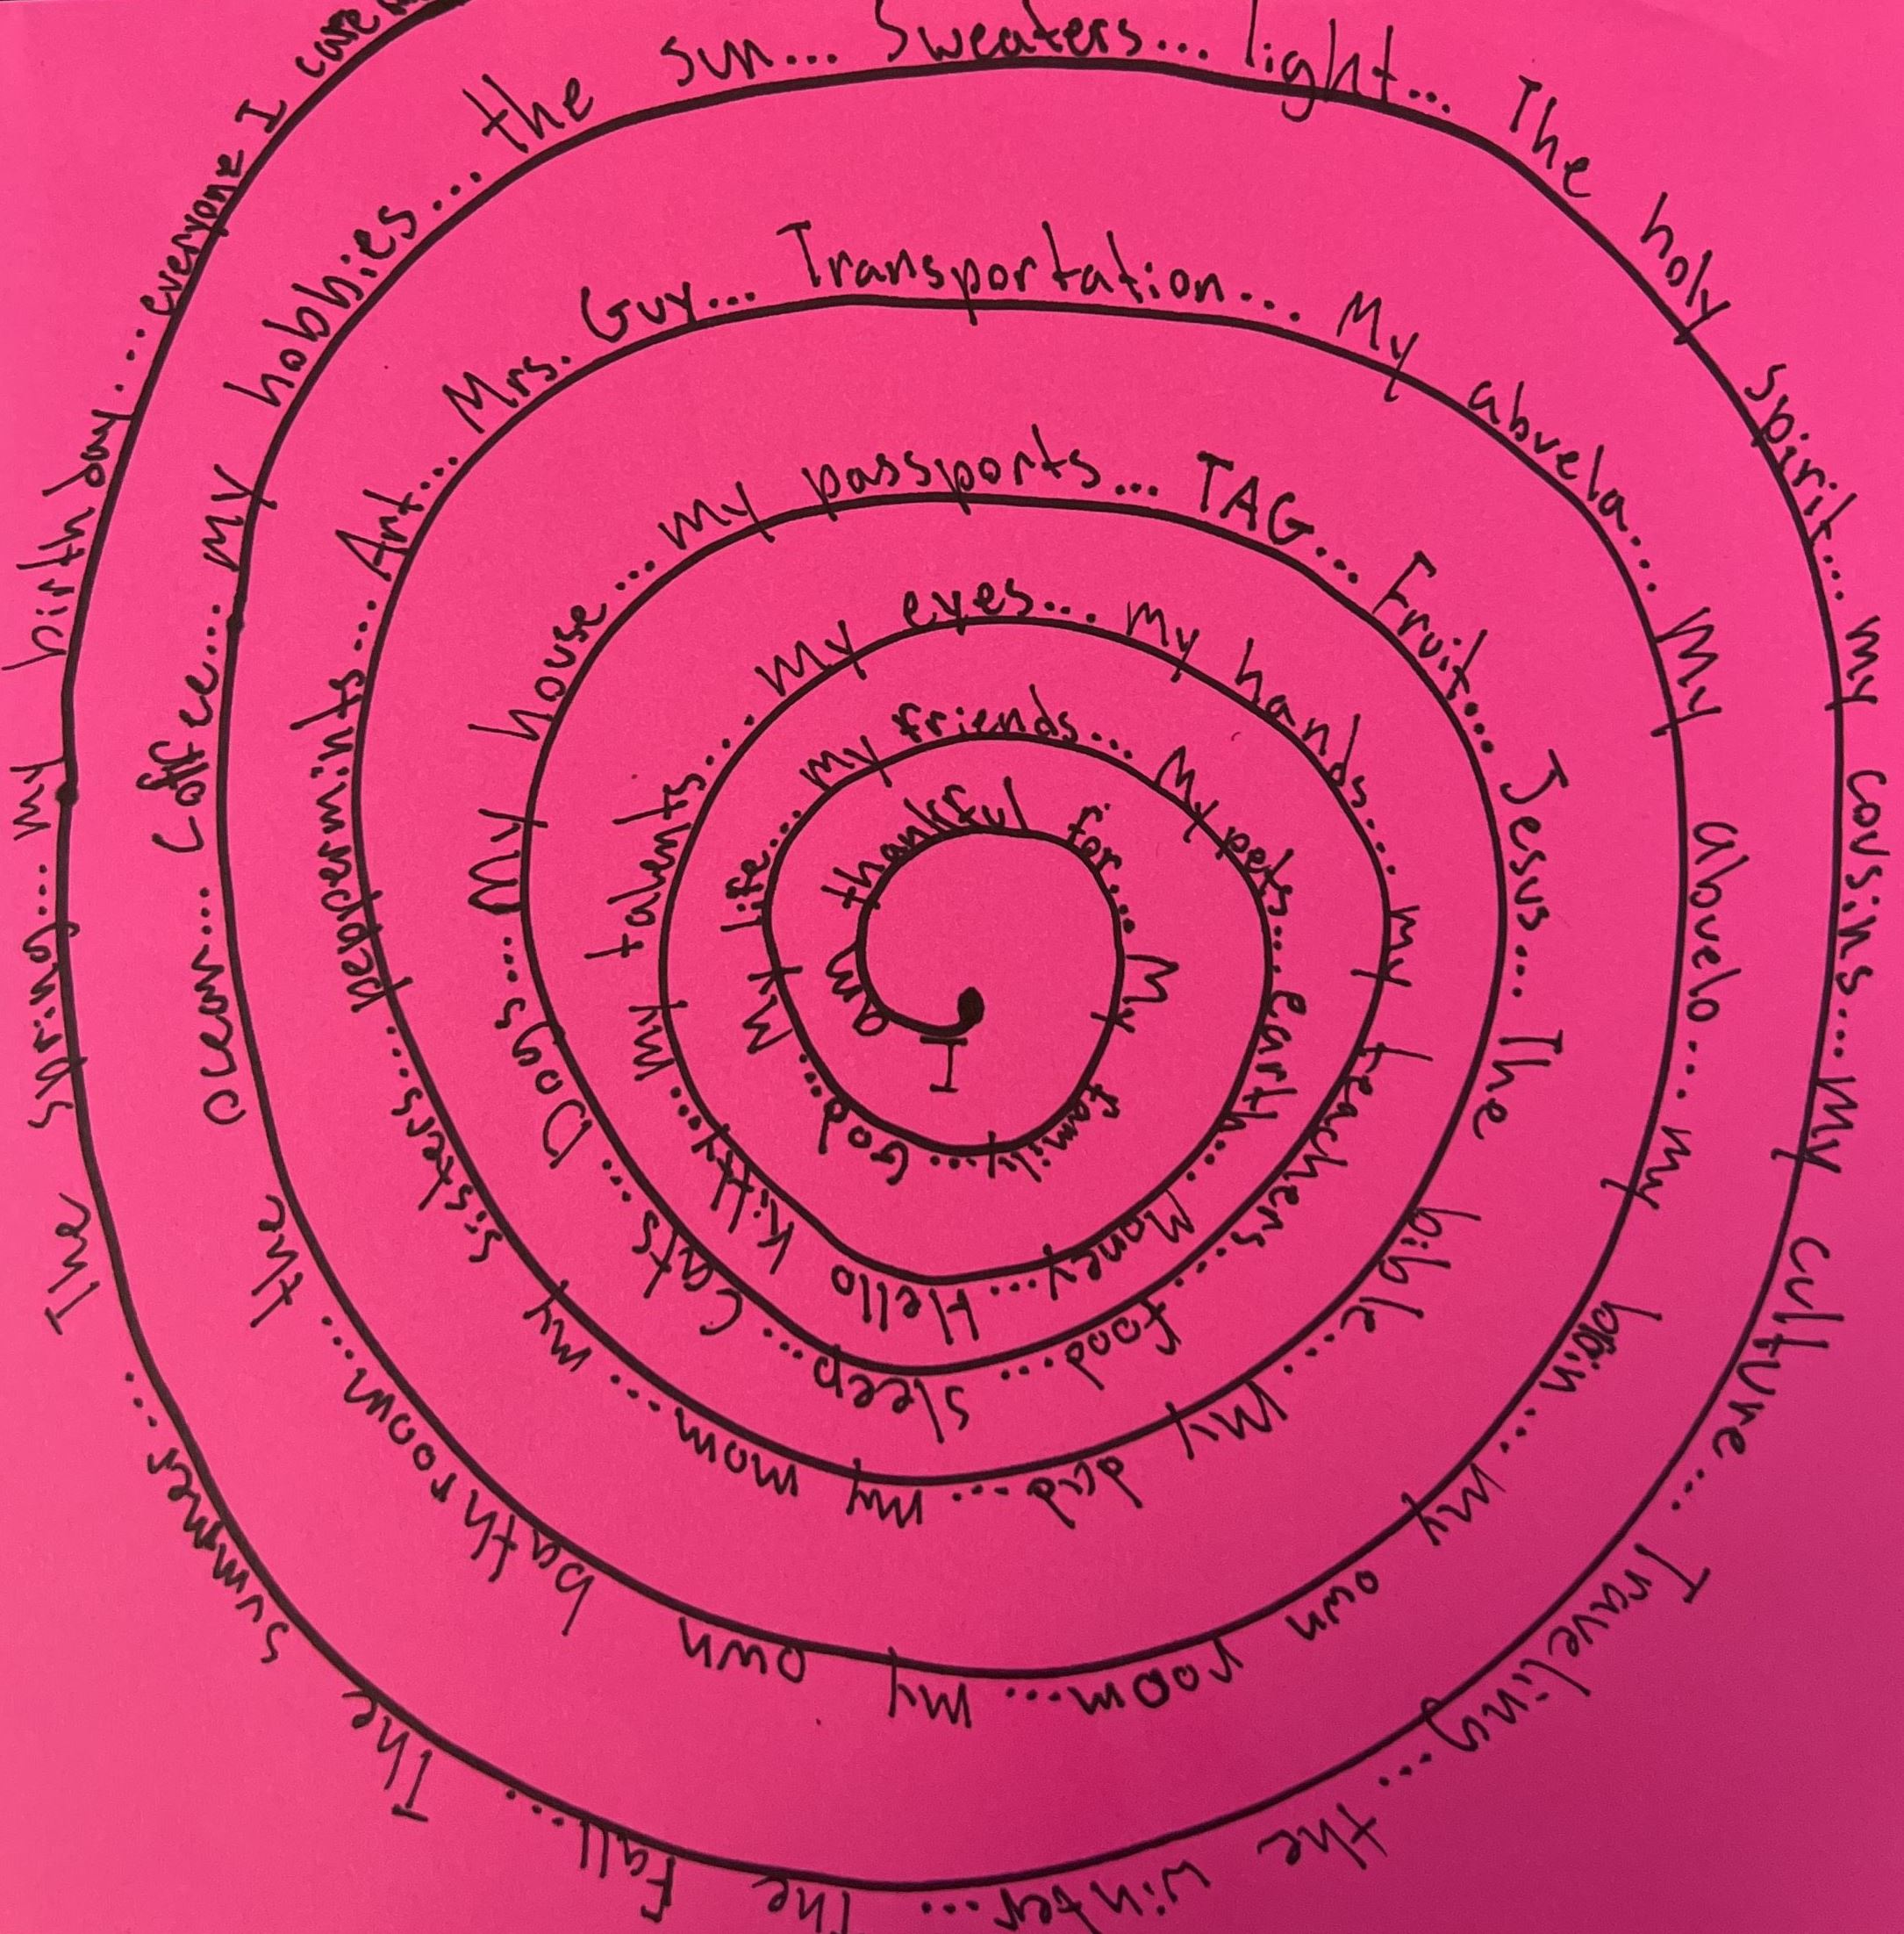 I am thankful for... My family... God... My life... my friends... My pets... earth... Money... Hello Kitty... my talents... my eyes... My hands... my teachers... food... sleep... Cats... Dogs... My house... my passports... TAG... Fruit... Jesus... The bible... My dad... my mom... my sisters... peppermints... Art... Mrs. Guy... Transportation... My abuela... My abuelo... my brain... my own room... my own bathroom... the ocean... Coffee... My hobbies... the sun... Sweaters... light... The holy spirit... my cousins... My culture... Traveling... the winter... The Fall... The summer... The spring... my birthday... everyone I care